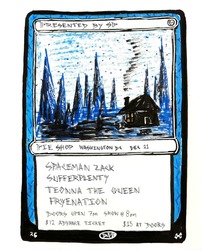 PRESENTED BY SD
PIE SHOP WASHINGTON DC DEC 21
SPACEMAN ZACK
SUFFERPLENTY
TEONNA THE QUEEN
FRYENATION
DOORS OPEN 7PM SHOW @ 8PM
$12 ADVANCE TICKET $15 AT DOORS
26